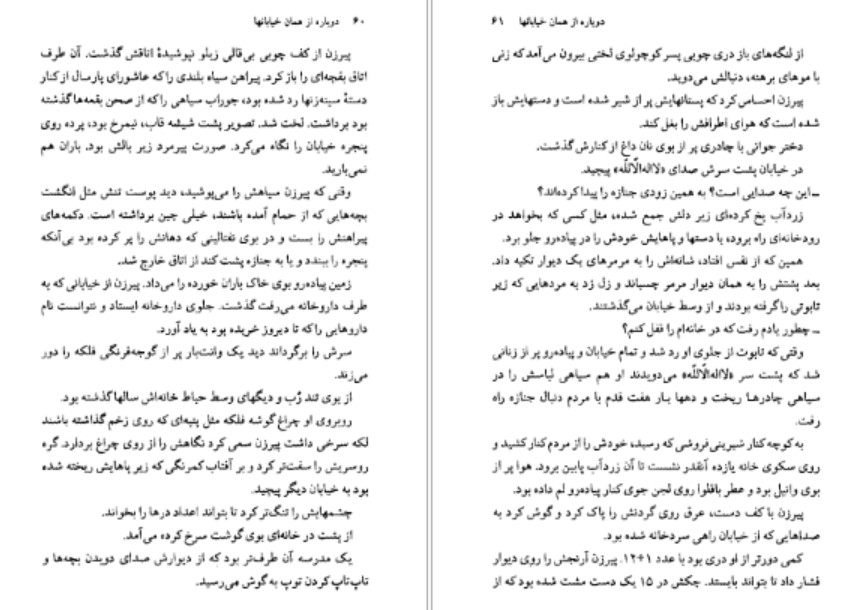 ۶۰ دوباره از همان خیابانها
پیرزن از کف چوبی بی‌قالی زیلو نپوشیدهٔ اتاقش گذشت. آن طرف
اتاق بقچه‌ای را باز کرد. پیراهن سیاه بلندی را که عاشورای پارسال از کنار
دستهٔ سینه‌زنها رد شده بود، جوراب سیاهی را که از صحن بقعه‌ها گذشته
بود برداشت. لخت شد. تصویر پشت شیشه قاب، نیمرخ بود، پرده روی
پنجره خیابان را نگاه می‌کرد. صورت پیرمرد زیر بالش بود. باران هم
نمی‌بارید.
وقتی که پیرزن سیاهش را می‌پوشید، دید پوست تنش مثل انگشت
بچه‌هایی که از حمام آمده باشند، خیلی چین برداشته است. دکمه‌های
پیراهنش را بست و در بوی نفتالینی که دهانش را پر کرده بود بی‌آنکه
پنجره را ببندد و یا به جنازه پشت کند از اتاق خارج شد.
زمین پیاده‌رو بوی خاک باران خورده را می‌داد. پیرزن از خیابانی که به
طرف داروخانه می‌رفت گذشت. جلوی داروخانه ایستاد و نتوانست نام
داروهایی را که تا دیروز خریده بود به یاد آورد.
سرش را برگرداند دید یک وانت‌بار پر از گوجه‌فرنگی فلکه را دور
می‌زند.
از بوی تند رُب و دیگهای وسط حیاط خانه‌اش سالها گذشته بود.
روبروی او چراغ گوشه فلکه مثل پنبه‌ای که روی زخم گذاشته باشند
لکه سرخی داشت پیرزن سعی کرد نگاهش را از روی چراغ بردارد. گره
روسریش را سفت‌تر کرد و بر آفتاب کمرنگی که زیر پاهایش ریخته شده
بود به خیابان دیگر پیچید.
چشمهایش را تنگ‌تر کرد تا بتواند اعداد درها را بخواند.
از پشت در خانه‌ای بوی گوشت سرخ کرده می‌آمد.
یک مدرسه آن طرف‌تر بود که از دیوارش صدای دویدن بچه‌ها و
تاپ‌تاپ کردن توپ به گوش می‌رسید.
دوباره از همان خیابانها ۶۱
از لنگه‌های باز دری چوبی پسر کوچولوی لختی بیرون می‌آمد که زنی
با موهای برهنه، دنبالش می‌دوید.
پیرزن احساس کرد که پستانهایش پر از شیر شده است و دستهایش باز
شده است که هوای اطرافش را بغل کند.
دختر جوانی با چادری پر از بوی نان داغ از کنارش گذشت.
در خیابان پشت سرش صدای «لااله‌الاالله» پیچید.
ــ این چه صدایی است؟ به همین زودی جنازه را پیدا کرده‌اند؟
زردآب یخ کرده‌ای زیر دلش جمع شده، مثل کسی که بخواهد در
رودخانه‌ای راه برود، با دستها و پاهایش خودش را در پیاده‌رو جلو برد.
همین که از نفس افتاد، شانه‌اش را به مرمرهای یک دیوار تکیه داد.
بعد پشتش را به همان دیوار مرمر چسباند و زل زد به مردهایی که زیر
تابوتی را گرفته بودند و از وسط خیابان می‌گذشتند.
ــ چطور یادم رفت که در خانه‌ام را قفل کنم؟
وقتی که تابوت از جلوی او رد شد و تمام خیابان و پیاده‌رو پر از زنانی
شد که پشت سر «لااله‌الاالله» می‌دویدند او هم سیاهی لباسش را در
سیاهی چادرها ریخت و دهها بار هفت قدم با مردم دنبال جنازه راه
رفت.
به کوچه کنار شیرینی‌فروشی که رسید، خودش را از مردم کنار کشید و
روی سکوی خانه یازده آنقدر نشست تا آن زردآب پایین برود. هوا پر از
بوی وانیل بود و عطر باقلوا روی لجن جوی کنار پیاده‌رو لم داده بود.
پیرزن با کف دست، عرق روی گردنش را پاک کرد و گوش کرد به
صداهایی که از خیابان راهی سردخانه شده بود.
کمی دورتر از او دری بود با عدد ۱+۱۲. پیرزن آرنجش را روی دیوار
فشار داد تا بتواند بایستد. چکش در ۱۵ یک دست مشت شده بود که از